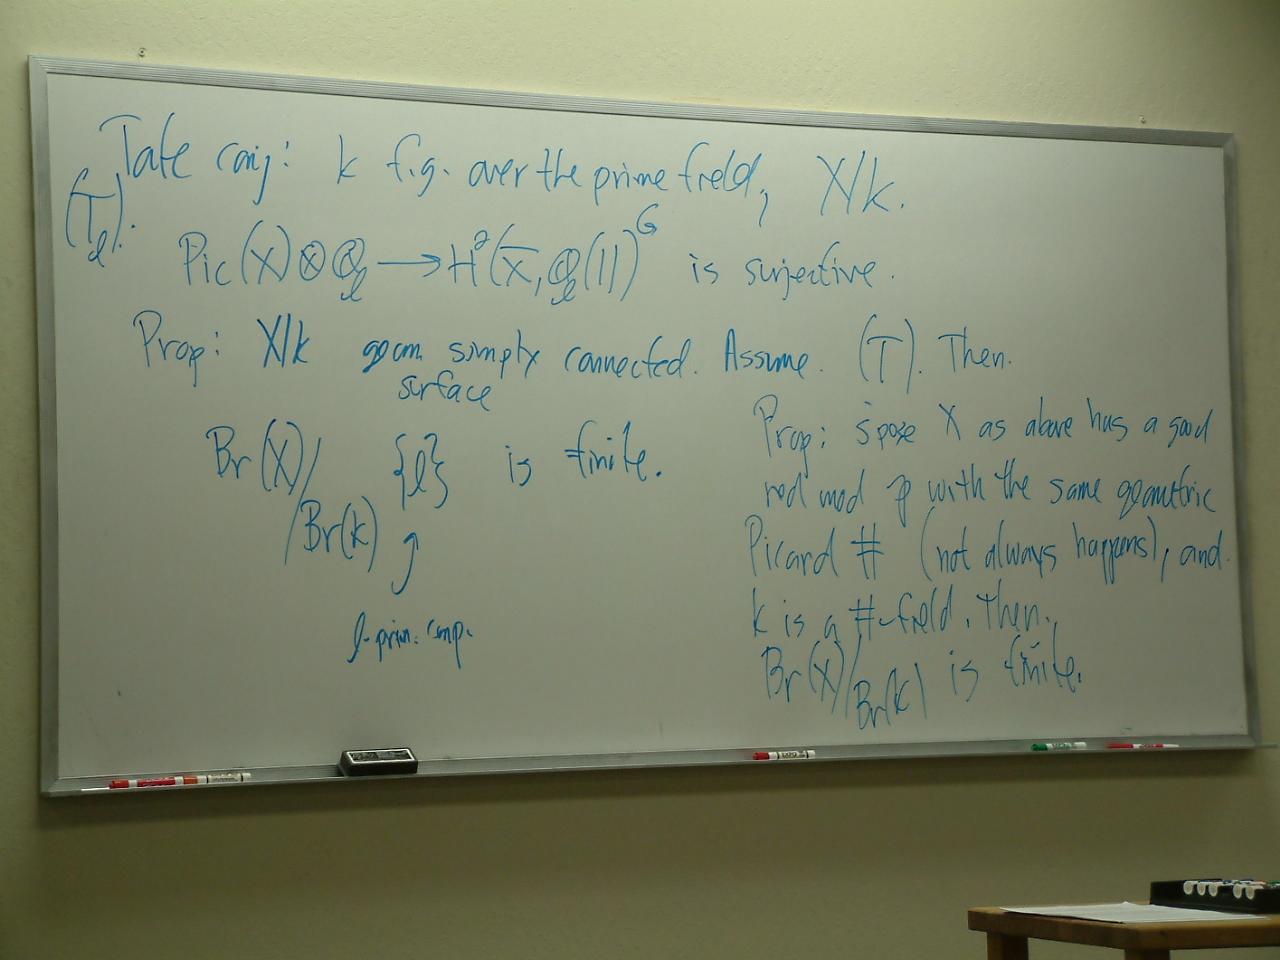 Tate conj: k f.g. over the prime field, X/k.
(T_ℓ).
Pic(X)⊗ℚ_ℓ → H²(X̄, ℚ_ℓ(1))^G is surjective.
Prop: X/k geom. simply connected. Assume (T). Then.
surface
Br(X)/Br(k) {ℓ} is finite.
ℓ-prim. comp.
Prop: spose X as above has a good
red mod 𝔭 with the same geometric
Picard # (not always happens), and
k is a #-field. Then.
Br(X)/Br(k) is finite.